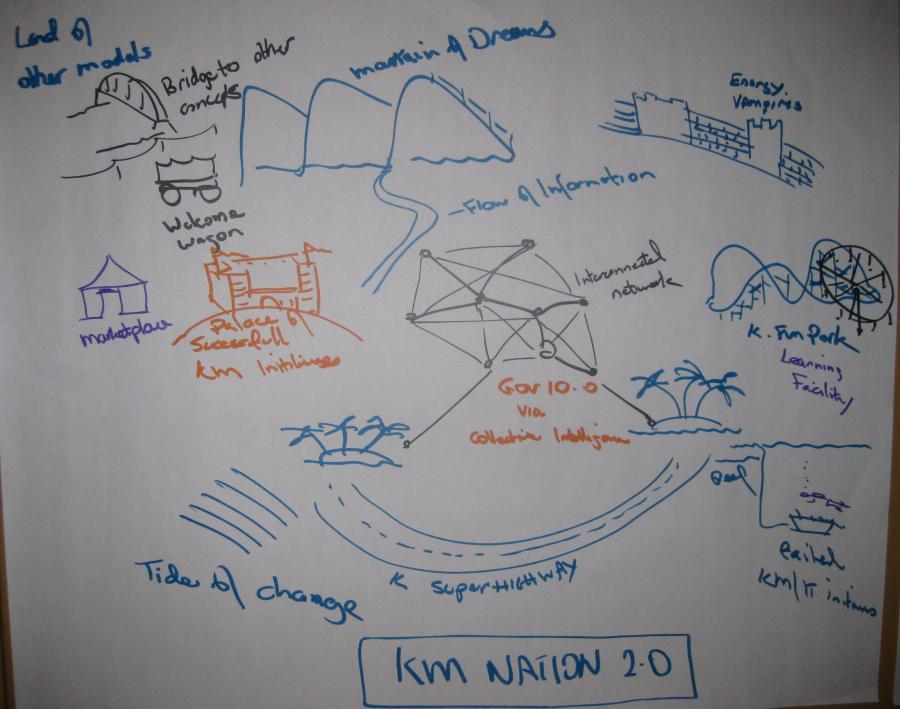 Land of
other models
Bridge to other
concepts
mountain of Dreams
Energy.
Vampires
Welcome
Wagon
Flow of Information
Interconnected
network
marketplace
Palace of
Successfull
KM Inititives
K. Fun Park
Learning
Facility
Gov 10.0
via
Collective Intelligence
Reef
Failed
KM/IT
Tide of change
K SUPERHIGHWAY
KM NATION 2.0